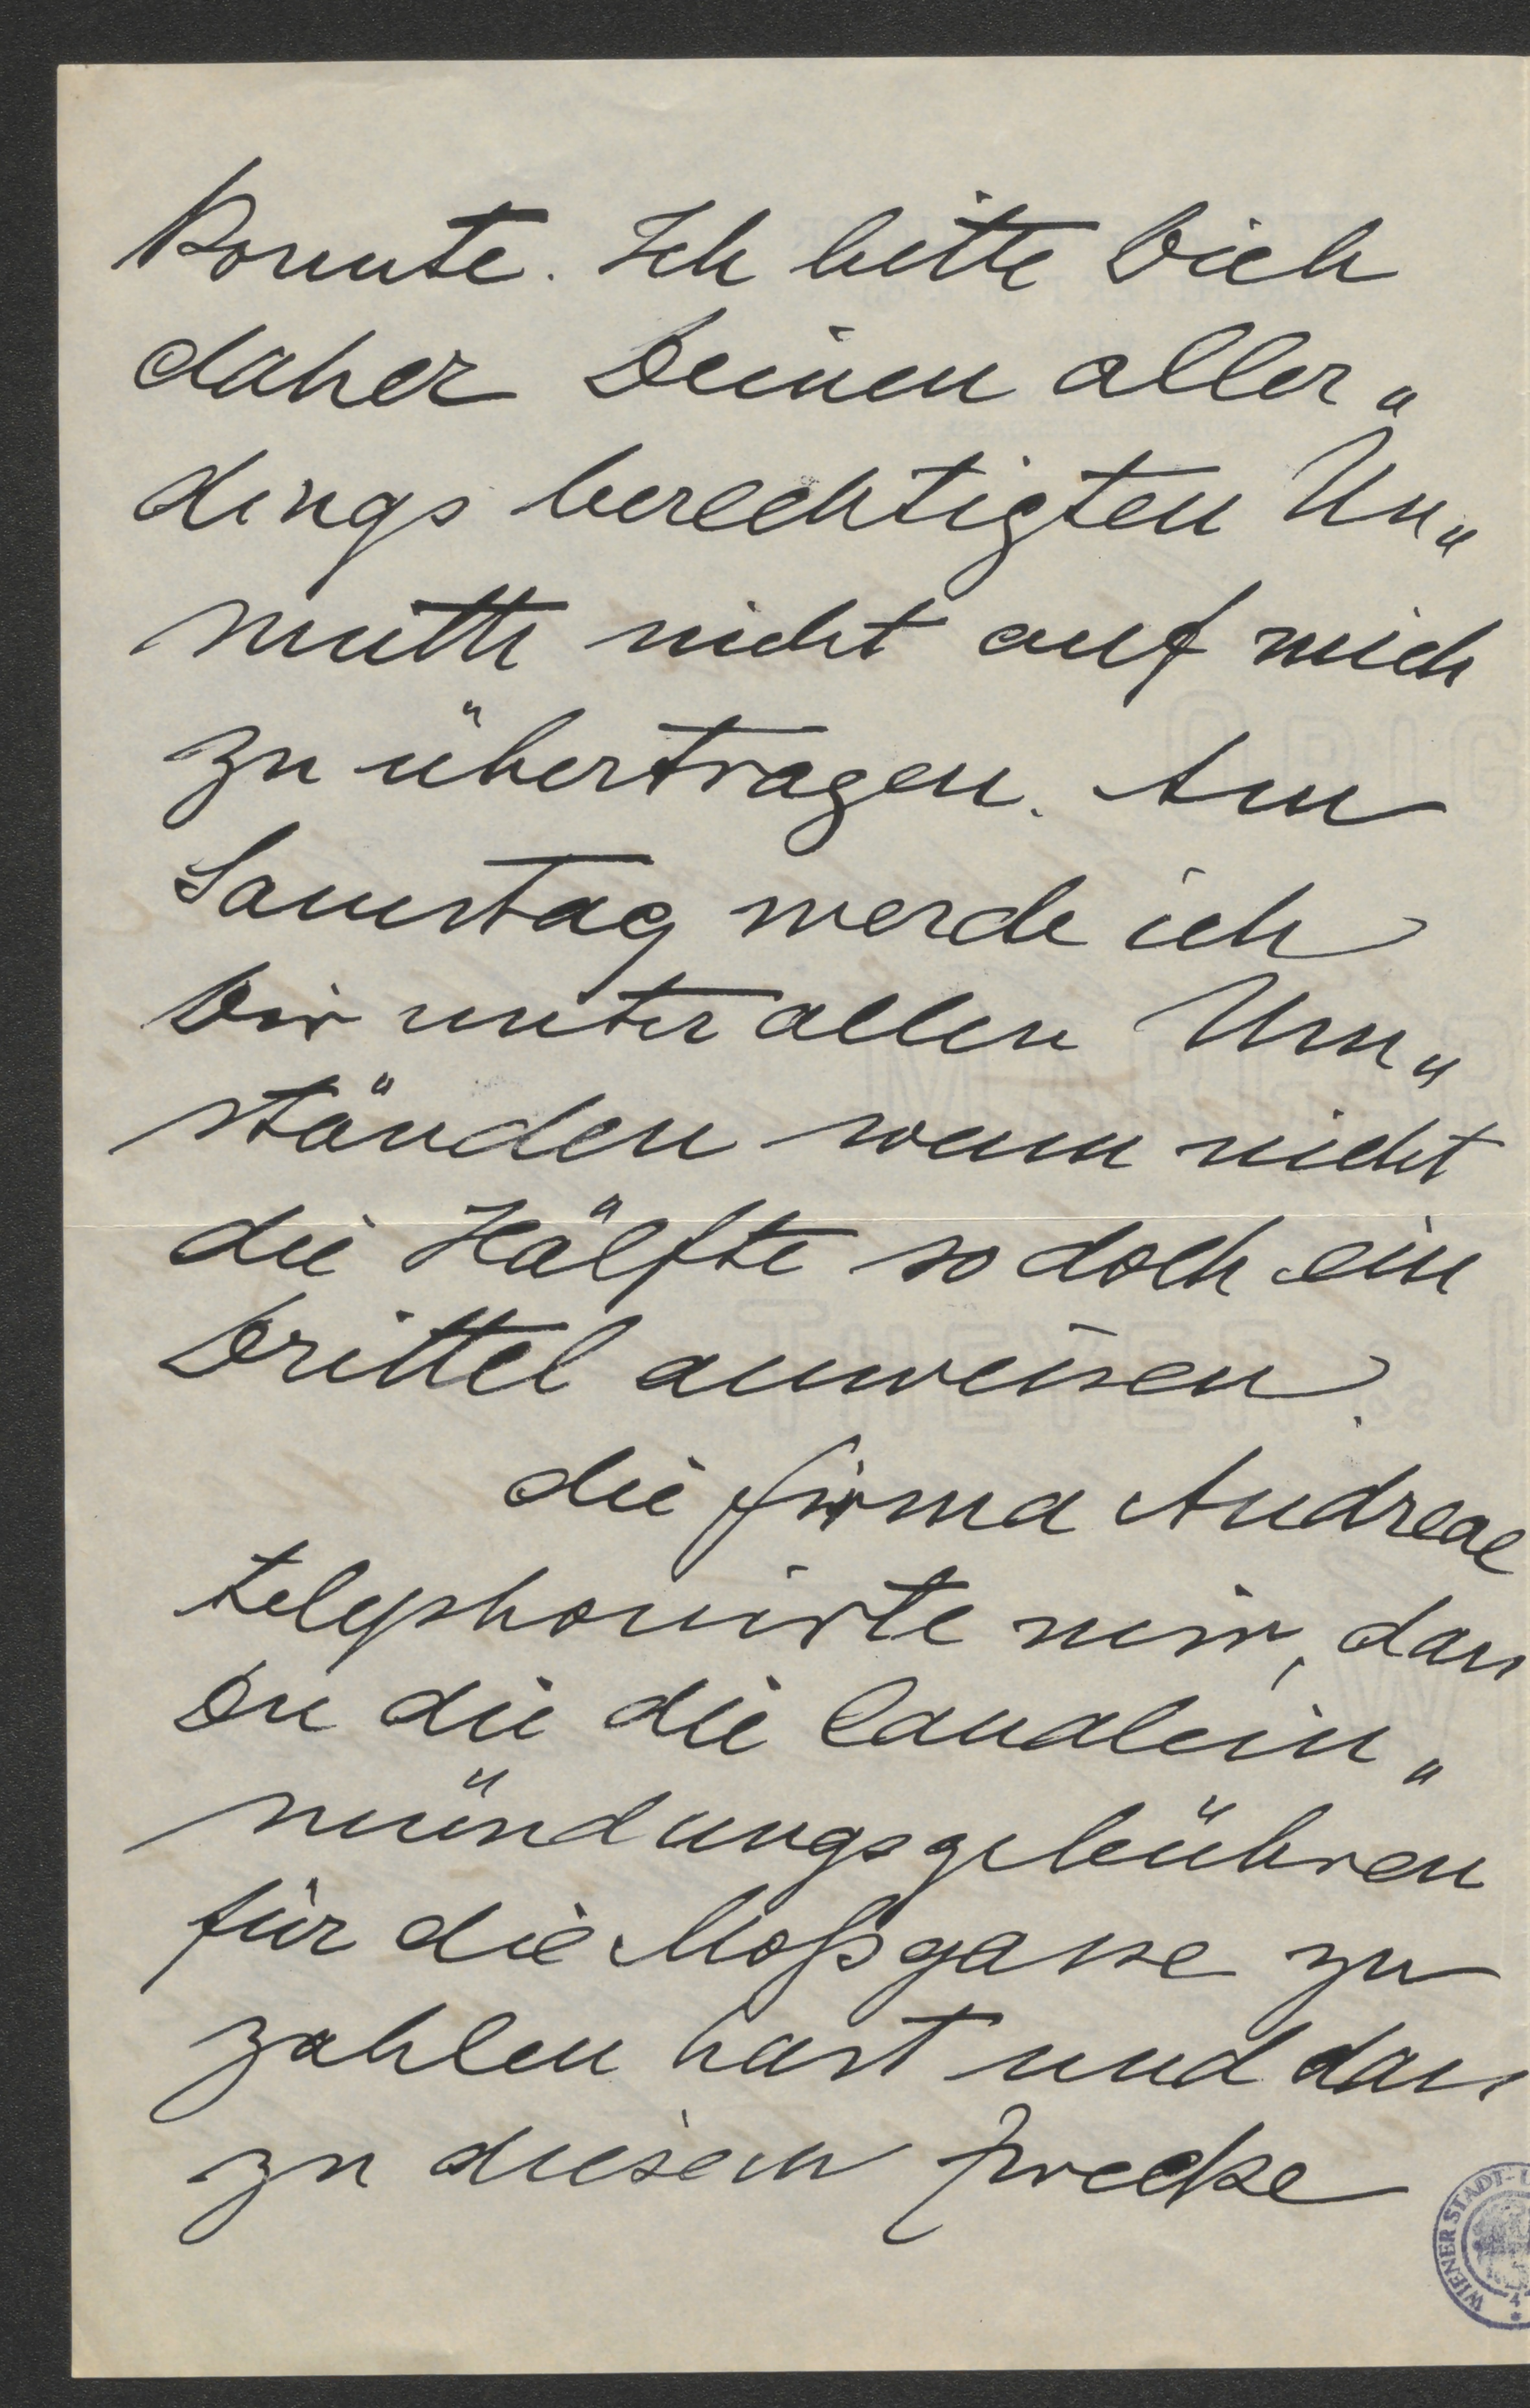 konnte. Ich bitte Dich
daher Deinen aller„
dings berechtigten Un„
muth nicht auf mich
zu übertragen. Am
Samstag werde ich
Dir unter allen Um„
ständen wenn nicht
die Hälfte so doch ein
Drittel anweisen.
die Firma Andreae
telephonirte mir, dass
Du die die Canalein„
mündungsgebühren
für die Moßgasse zu
zahlen hast und dass
zu diesem Zwecke
WIENER STADT-